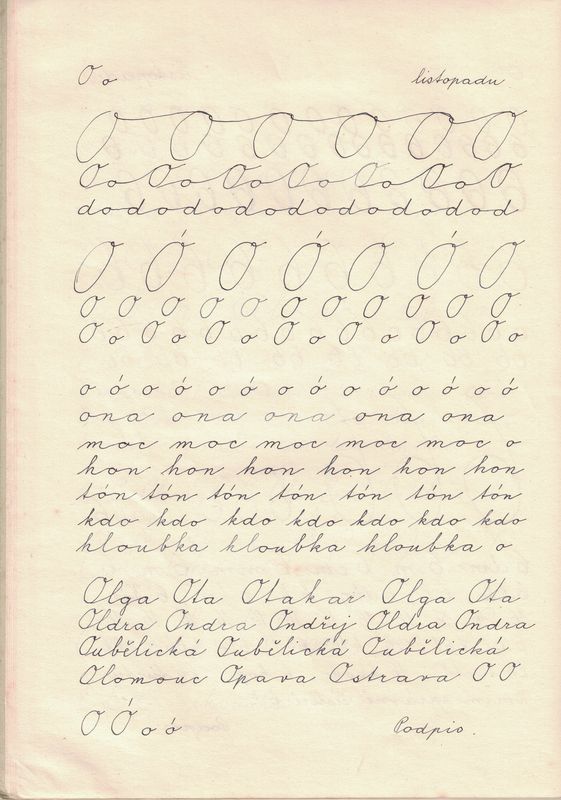 O o listopadu
O O O O O O
Oo Oo Oo Oo Oo Oo O
dodododododododododod
O Ó O Ó O Ó O
O O O O O O O O O O O
O o O o O o O o O o O o O o
o ó o ó o ó o ó o ó o ó o ó
ona ona ona ona ona
moc moc moc moc moc o
hon hon hon hon hon hon
tón tón tón tón tón tón tón
kdo kdo kdo kdo kdo kdo kdo
hloubka hloubka hloubka o
Olga Ota Otakar Olga Ota
Oldra Ondra Ondřej Oldra Ondra
Oubělická Oubělická Oubělická
Olomouc Opava Ostrava O O
O Ó o ó Podpis.